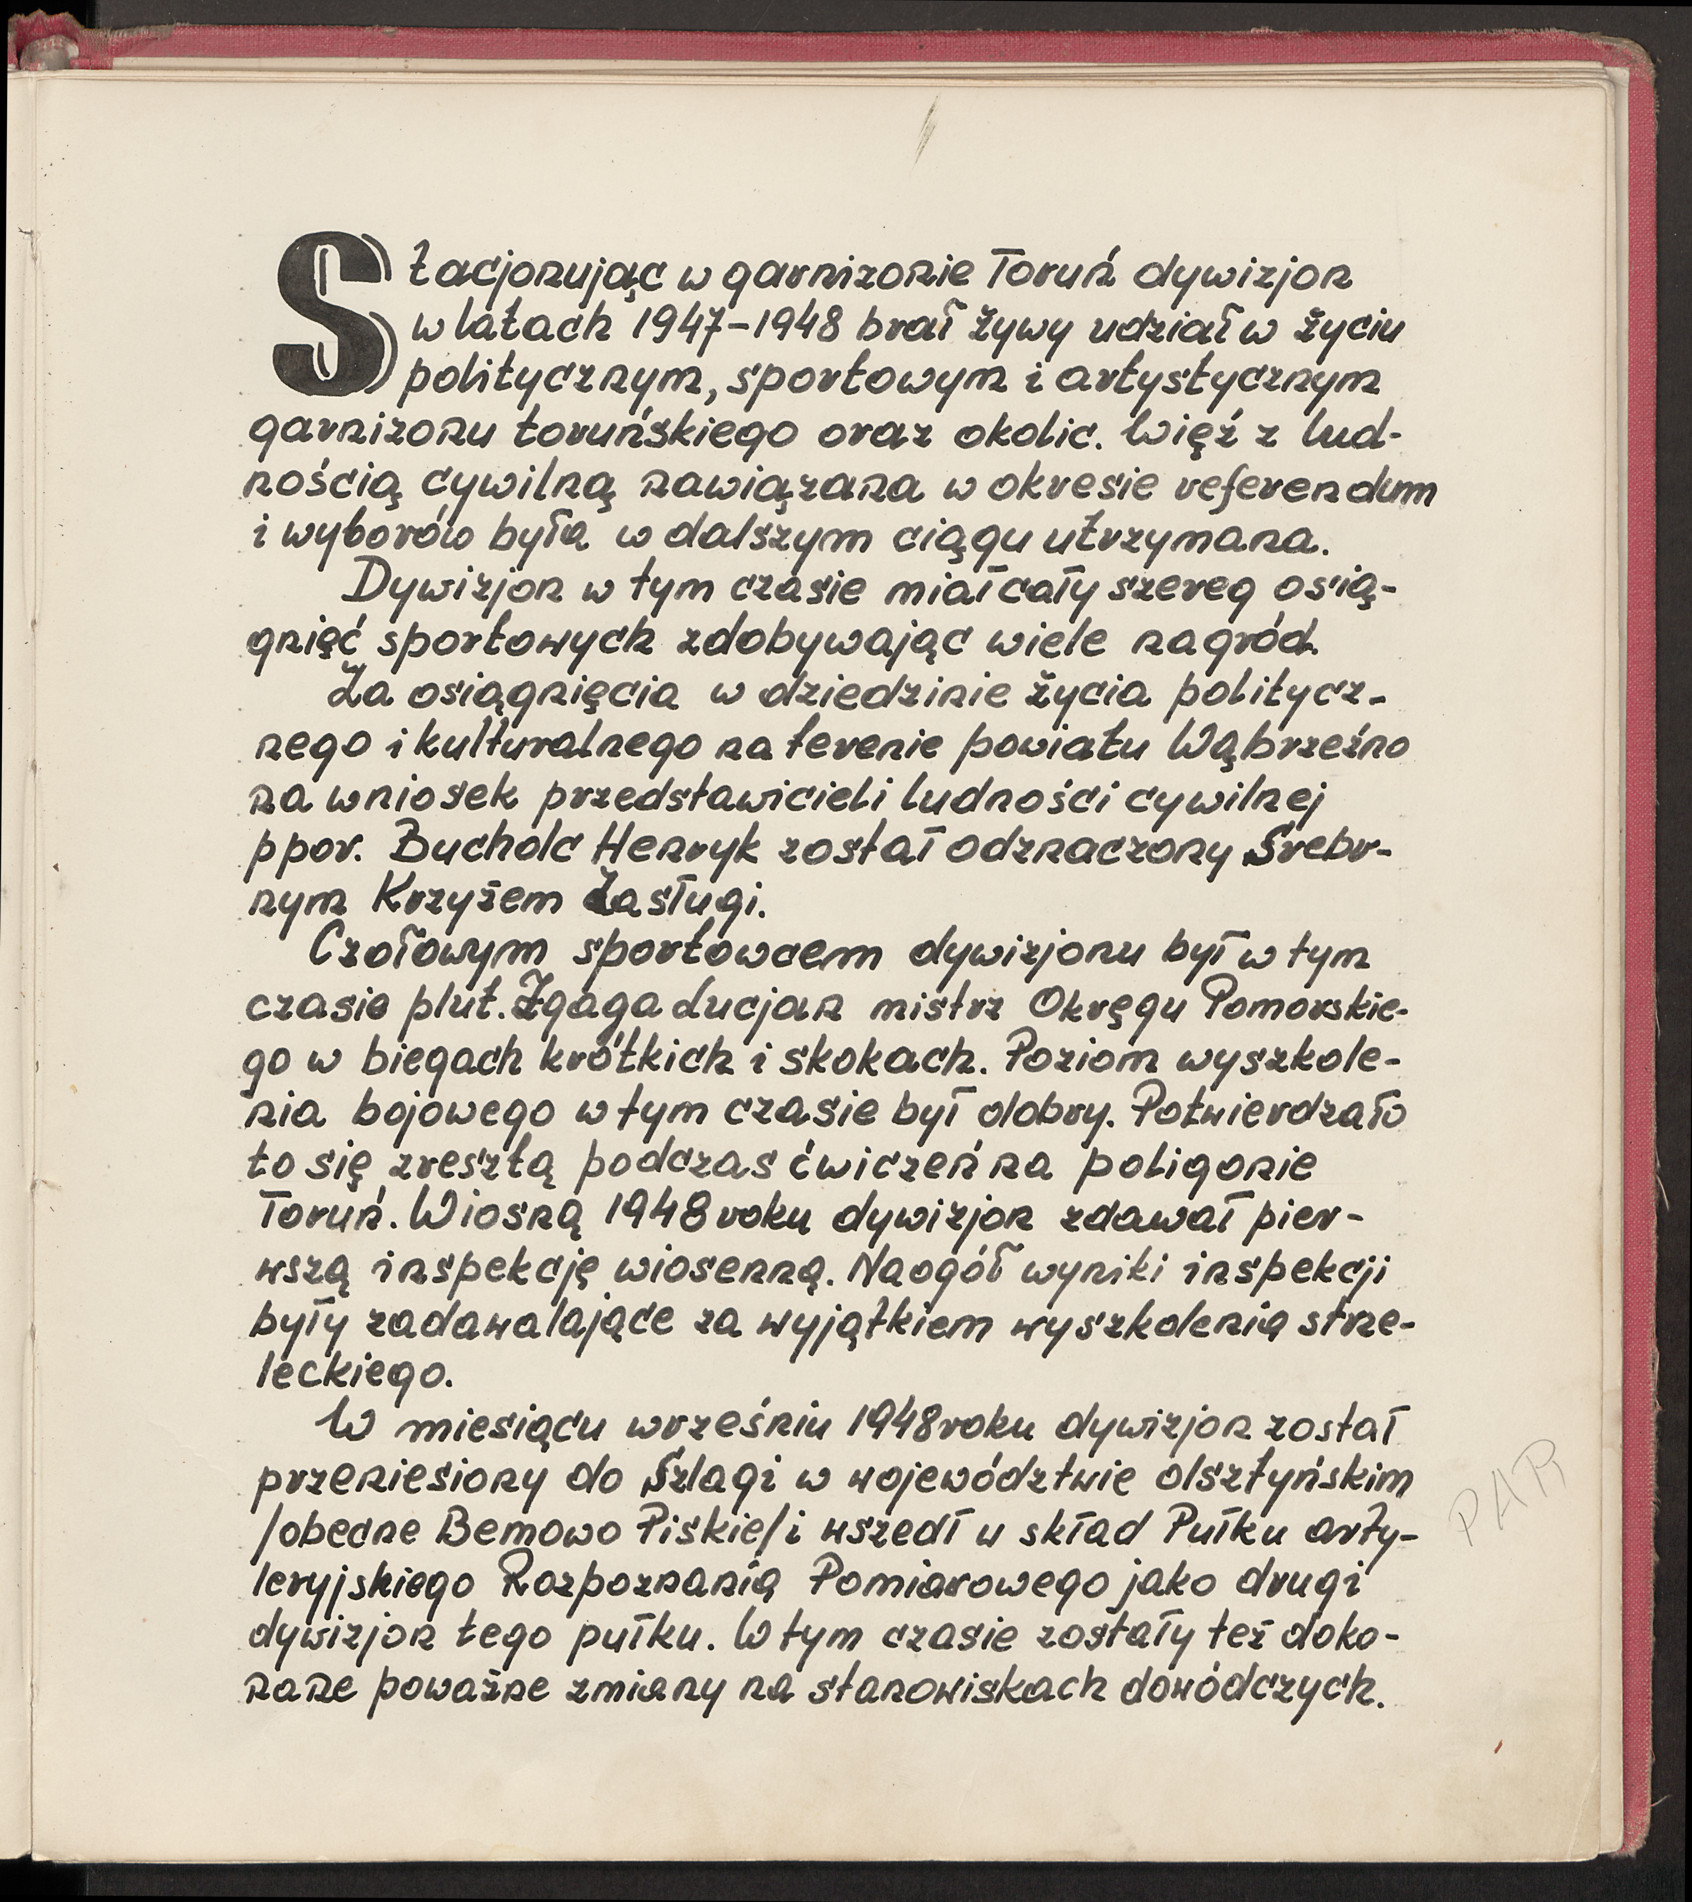 Stacjonując w garnizonie Toruń dywizjon
w latach 1947-1948 brał żywy udział w życiu
politycznym, sportowym i artystycznym
garnizonu toruńskiego oraz okolic. Więź z lud-
nością cywilną nawiązana w okresie referendum
i wyborów była w dalszym ciągu utrzymana.
Dywizjon w tym czasie miał cały szereg osią-
gnięć sportowych zdobywając wiele nagród.
Za osiągnięcia w dziedzinie życia politycz-
nego i kulturalnego na terenie powiatu Wąbrzeźno
na wniosek przedstawicieli ludności cywilnej
ppor. Bucholc Henryk został odznaczony Srebr-
nym Krzyżem Zasługi.
Czołowym sportowcem dywizjonu był w tym
czasie plut. Zgaga Lucjan mistrz Okręgu Pomorskie-
go w biegach krótkich i skokach. Poziom wyszkole-
nia bojowego w tym czasie był dobry. Potwierdzało
to się zresztą podczas ćwiczeń na poligonie
Toruń. Wiosną 1948 roku dywizjon zdawał pier-
wszą inspekcję wiosenną. Naogół wyniki inspekcji
były zadawalające za wyjątkiem wyszkolenia strze-
leckiego.
W miesiącu wrześniu 1948 roku dywizjon został
przeniesiony do Szlagi w województwie olsztyńskim
/obecne Bemowo Piskie/ i wszedł w skład Pułku arty-
leryjskiego Rozpoznania Pomiarowego jako drugi
dywizjon tego pułku. W tym czasie zostały też doko-
nane poważne zmiany na stanowiskach dowódczych.
PAR